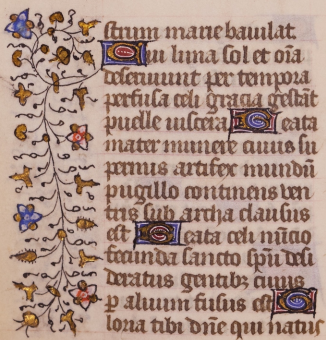 strum marie baiulat.
Cui luna sol et oīa
deseruiunt per tempora
perfusa celi gracia gestāt
puelle uiscera Beata
mater munere cuius su
pernus artifex mundū
pugillo continens ven
tris sub archa clausus
est Beata celi nūcio
fecunda sancto spū desi
deratus gentibz cuius
p aluum fusus est G
loria tibi dn̄e qui natus